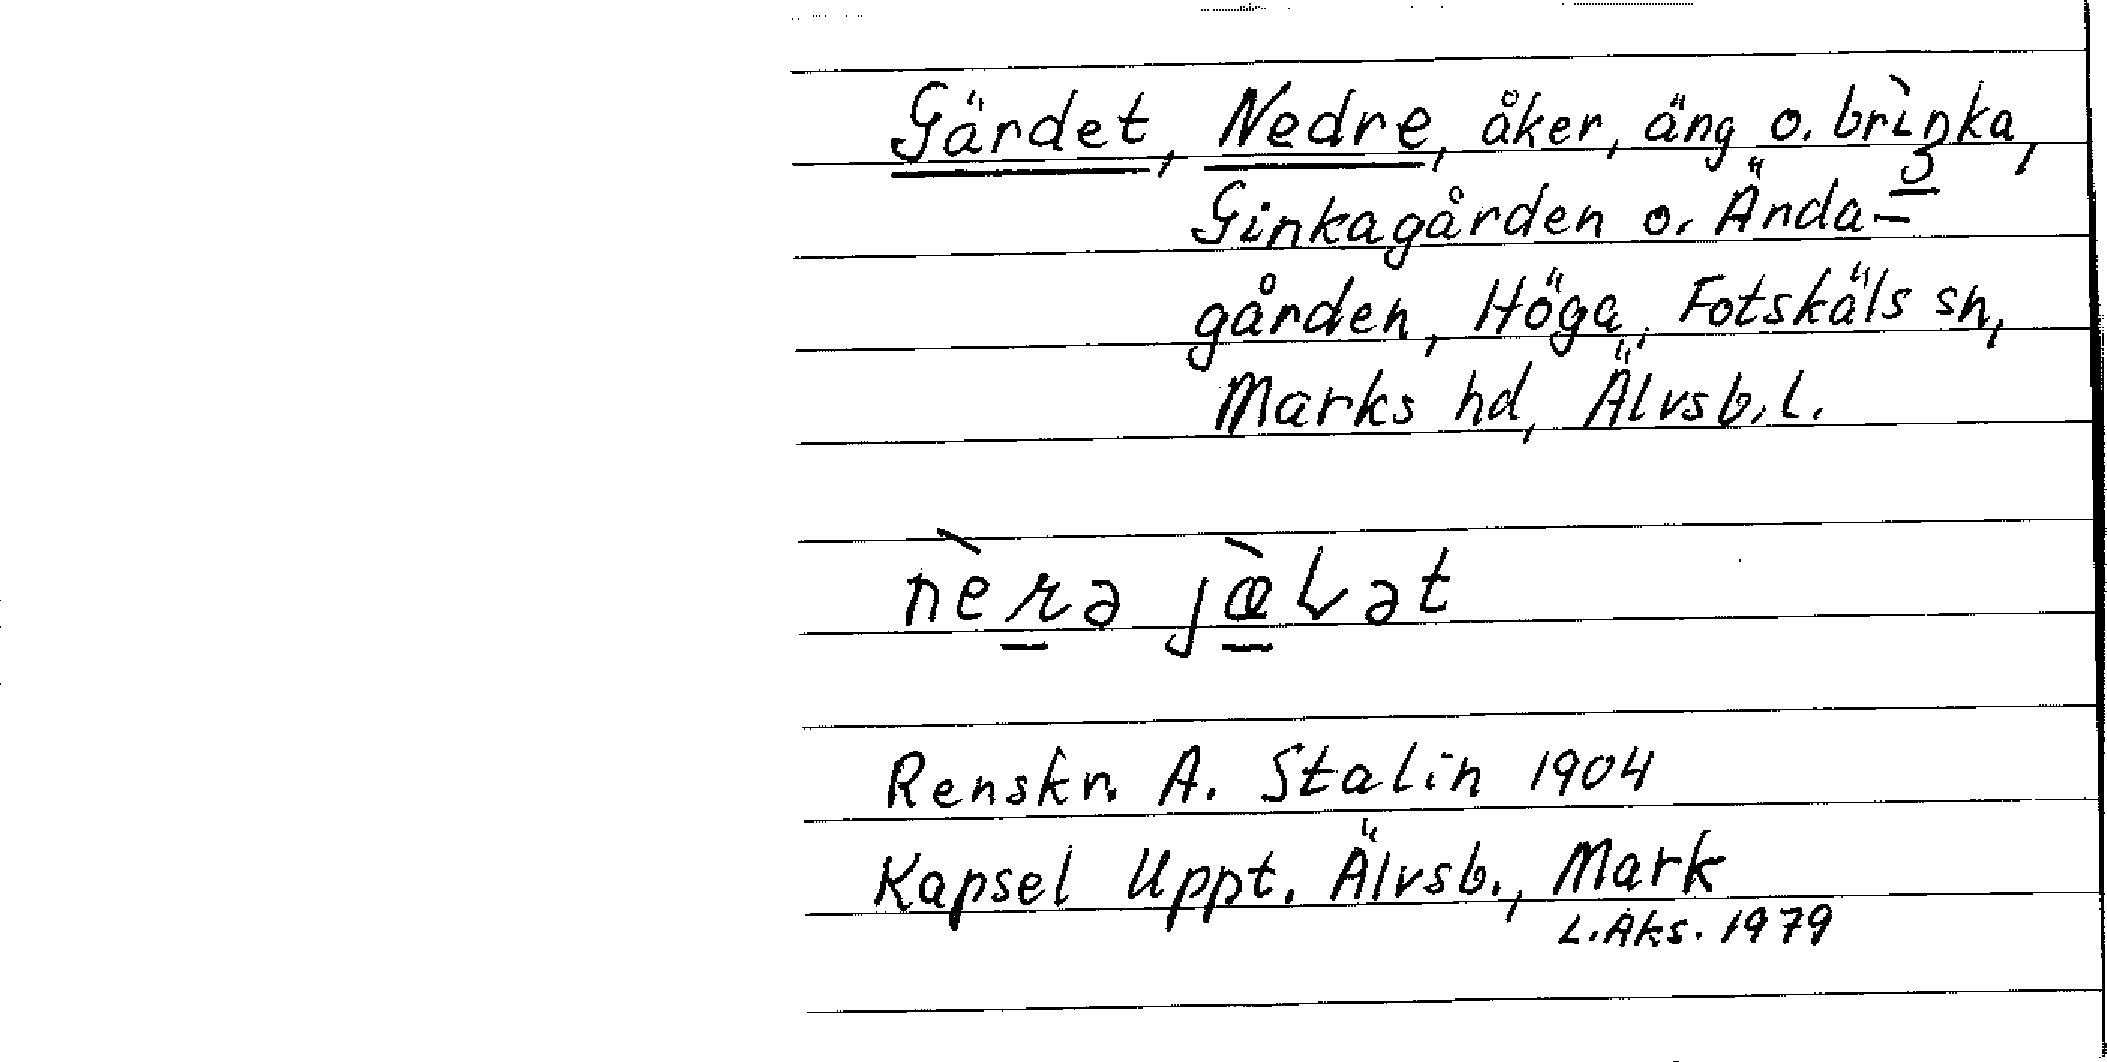 Gärdet, Nedre, åker, äng o. brìŋka,
Ginkagården o. Ända-
gården, Höga, Fotskäls sn,
Marks hd, Älvsb. l.
nèrə jæ̀Lət
Renskr. A. Stalin 1904
Kapsel Uppt. Älvsb., Mark
L. Aks. 1979